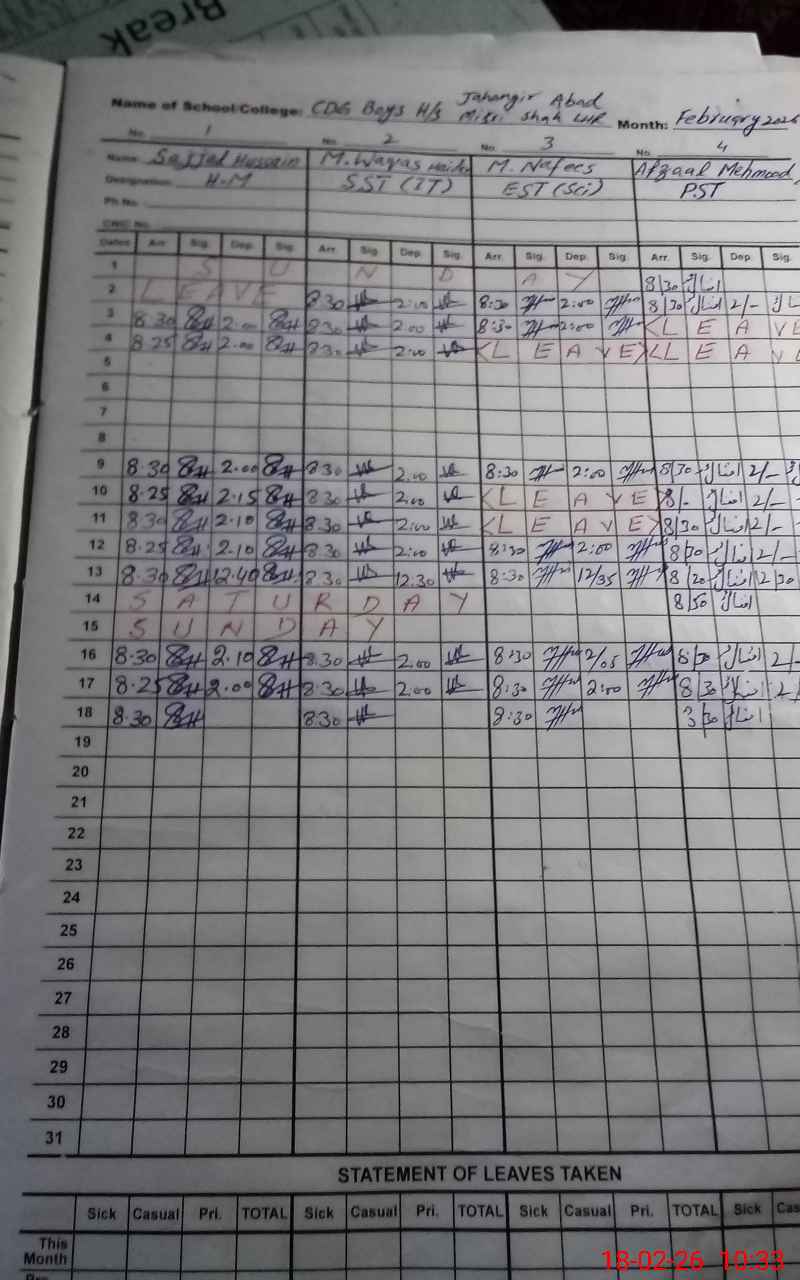 Break
Name of School/College: CDG Boys H/S Jahangir Abad Misri Shah LHR Month: February 2026
No. 1 No. 2 No. 3 No. 4
Name: Sajjad Hussain M. Waqas Haider M. Nafees Afzaal Mehmood
Designation: H.M SST (IT) EST (Sci) PST
Ph No.
CNIC No.
Dates Arr. Sig. Dep. Sig. Arr. Sig. Dep. Sig. Arr. Sig. Dep. Sig. Arr. Sig. Dep. Sig.
1 S U N D A Y 8/30
2 LEAVE 8:30 2:00 8:30 2:00 8/30 2/-
3 8.30 2.00 8:30 2:00 8:30 2:00 LEAVE
4 8.25 2.00 8:30 2:00 LEAVE LEAVE
5
6
7
8
9 8.30 2.00 8:30 2.00 8:30 2:00 8/30 2/-
10 8.25 2.15 8:30 2:00 LEAVE 8/- 2/-
11 8.30 2.10 8.30 2:00 LEAVE 8/30 2/-
12 8.25 2.10 8.30 2:00 8:30 2:00 8/30 2/-
13 8.30 12.40 8.30 12.30 8:30 12/35 8/20
14 S A T U R D A Y 8/50
15 S U N D A Y
16 8.30 2.10 8.30 2.00 8:30 2/05 8/30 2/-
17 8.25 2.00 8:30 2.00 8:30 2:00 8/30
18 8.30 8:30 8:30
19
20
21
22
23
24
25
26
27
28
29
30
31
STATEMENT OF LEAVES TAKEN
Sick Casual Pri. TOTAL Sick Casual Pri. TOTAL Sick Casual Pri. TOTAL Sick Cas
This Month
18-02-26 10:33